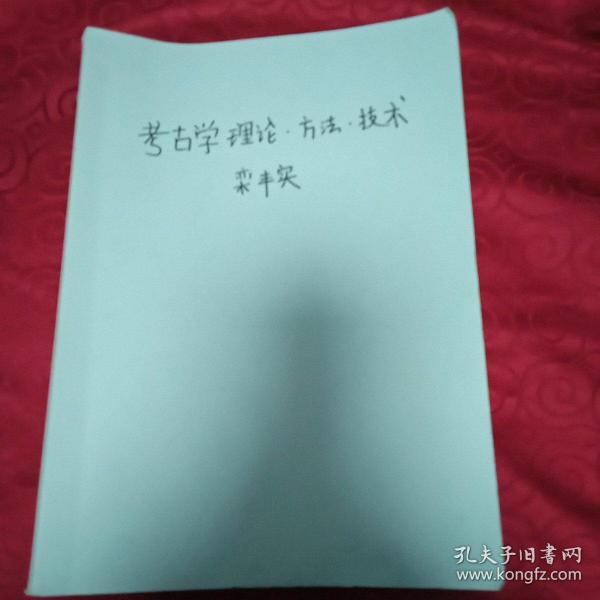 考古学理论·方法·技术
栾丰实
孔夫子旧書网
www.kongfz.com